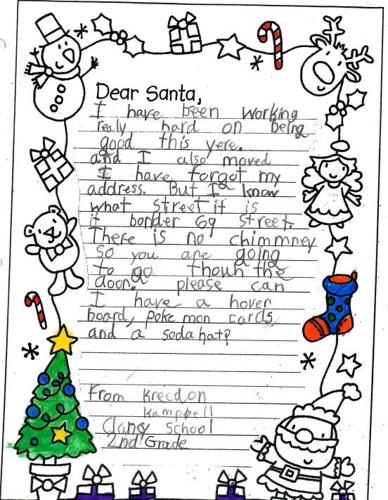 Dear Santa,
I have been working
realy hard on being
good this yere.
and I also moved
I have forgot my
address. But I know
what street it is
it border 69 street.
There is no chimmney
so you are going
to go thouh the
door. please can
I have a hover
board, poke mon cards
and a soda hat?
From Kreedon
Kampbell
Clancy School
2nd Grade